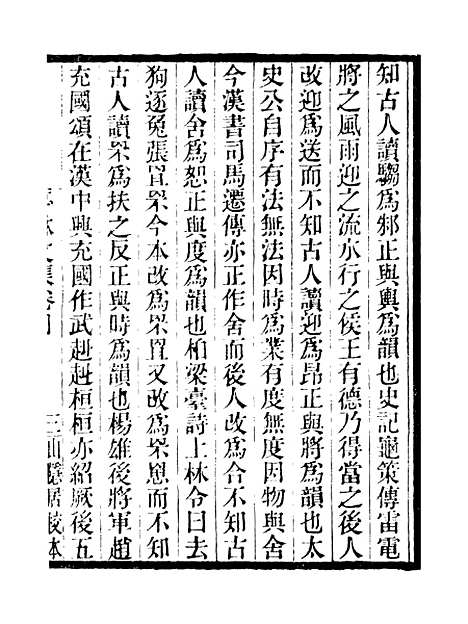 知古人讀騶爲邾正與輿爲韻也史記龜策傳雷電
將之風雨迎之流水行之侯王有德乃得當之後人
改迎爲送而不知古人讀迎爲昂正與將爲韻也太
史公自序有法無法因時爲業有度無度因物與舍
今漢書司馬遷傳亦正作舍而後人改爲合不知古
人讀舍爲恕正與度爲韻也柏梁臺詩上林令曰去
狗逐兔張罝罘今本改爲罘罝又改爲罘罳而不知
古人讀罘爲扶之反正與時爲韻也楊雄後將軍趙
充國頌在漢中興充國作武赳赳桓桓亦紹厥後五
亭林文集卷四
三 山隱居校本